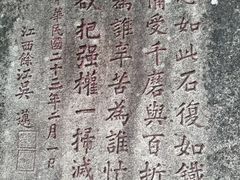 志如此石復如鐵
備受千磨與百折
為誰辛苦為誰忙
敵犯强權一掃滅
華民國二十三年二月一日
江西餘江吳